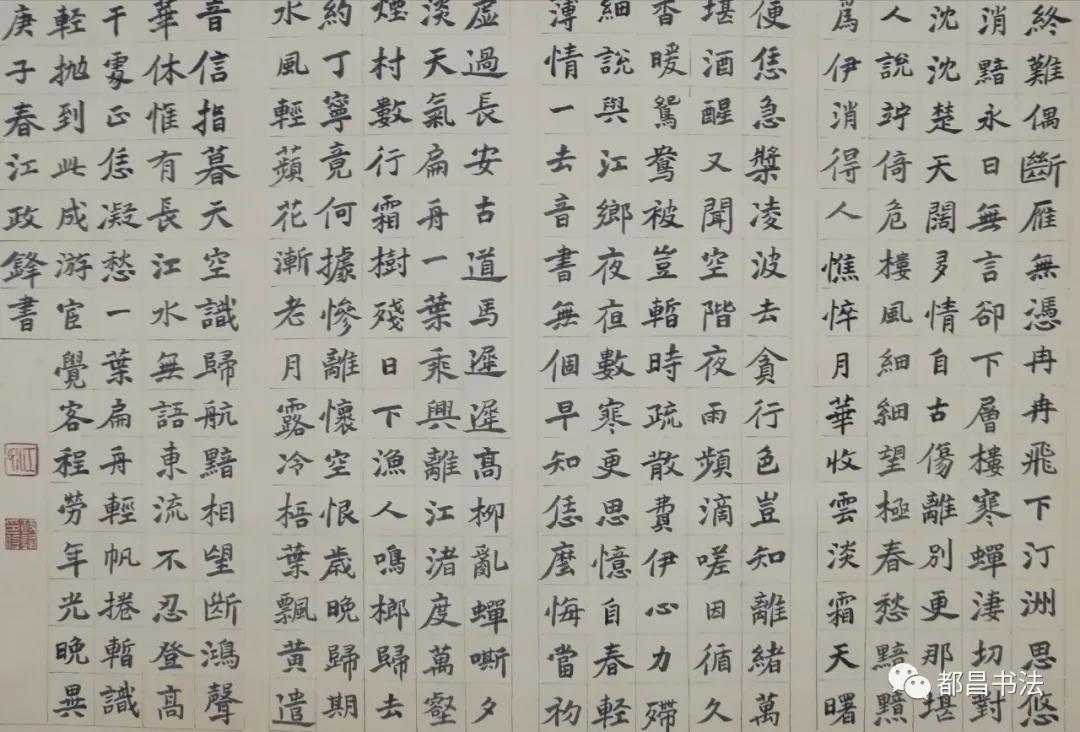 終難偶斷雁無憑冉冉飛下汀洲思悠
消黯永日無言卻下層樓寒蟬淒切對
沈沈楚天闊多情自古傷離別更那堪
人說竚倚危樓風細細望極春愁黯黯
爲伊消得人憔悴月華收雲淡霜天曙
便恁急槳凌波去貪行色豈知離緒萬
堪酒醒又聞空階夜雨頻滴嗟因循久
香暖鴛鴦被豈暫時疏散費伊心力殢
細說與江鄉夜夜數寒更思憶自春輕
薄情一去音書無個早知恁麼悔當初
虛過長安古道馬遲遲高柳亂蟬嘶夕
淡天氣扁舟一葉乘興離江渚度萬壑
煙村數行霜樹殘日下漁人鳴榔歸去
約丁寧竟何據慘離懷空恨歲晚歸期
水風輕蘋花漸老月露冷梧葉飄黃遣
音信指暮天空識歸航黯相望斷鴻聲
華休惟有長江水無語東流不忍登高
干處正恁凝愁一葉扁舟輕帆捲暫識
輕抛到此成游宦覺客程勞年光晚異
庚子春江政鋒書
都昌书法